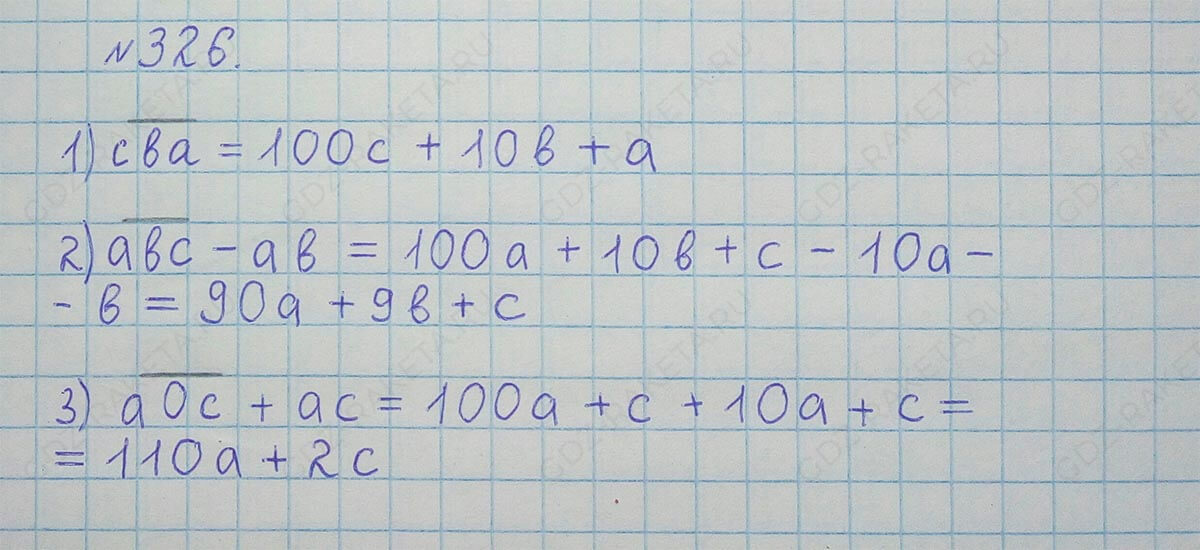 №326.
1) c̅b̅a̅ = 100c + 10b + a
2) a̅b̅c̅ - ab = 100a + 10b + c - 10a -
- b = 90a + 9b + c
3) a̅0̅c̅ + ac = 100a + c + 10a + c =
= 110a + 2c